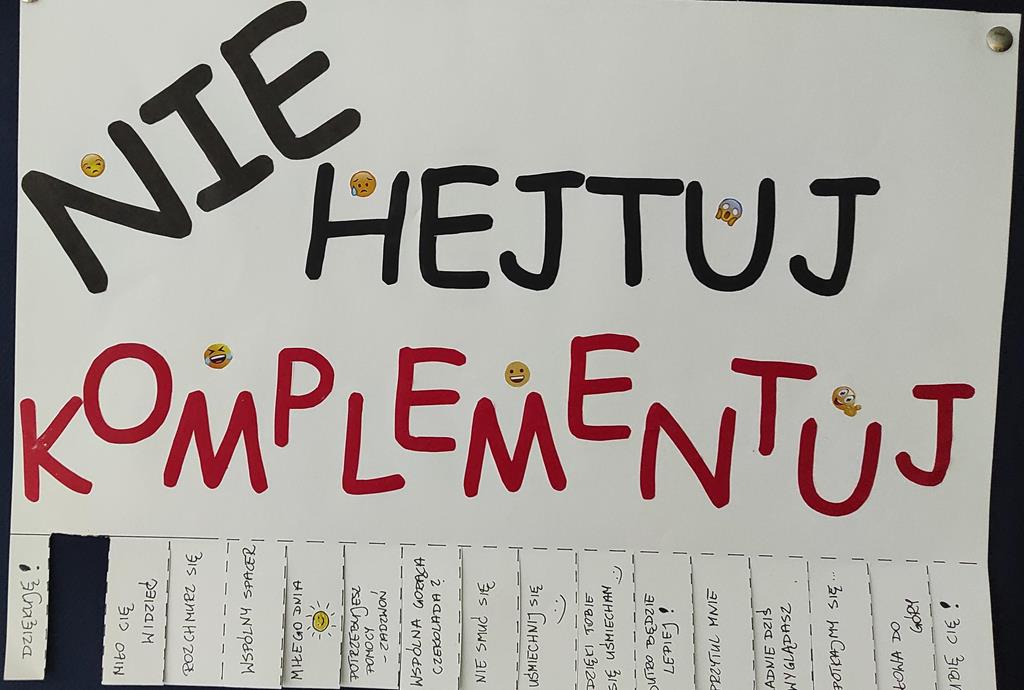 NIE
HEJTUJ
KOMPLEMENTUJ
MIŁO CIĘ
WIDZIEĆ
ROZCHMURZ SIĘ
WSPÓLNY SPACER
MIŁEGO DNIA
POTRZEBUJESZ
POMOCY
- ZADZWOŃ
WSPÓLNA GORĄCA
CZEKOLADA?
NIE SMUĆ SIĘ
UŚMIECHNIJ SIĘ
DZIĘKI TOBIE
SIĘ UŚMIECHAM
BĘDZIE
LEPIEJ!
PRZYTUL MNIE
DZIŚ
WYGLĄDASZ
SIĘ...
DO
GÓRY
CIĘ!